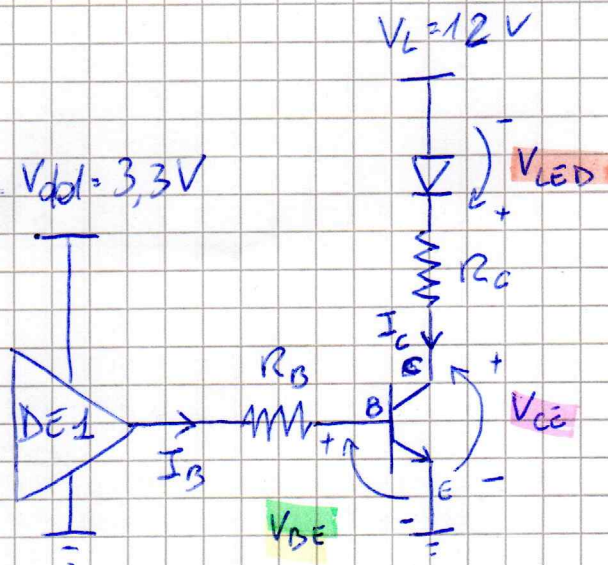 V_L=12 V
-
V_LED
Vdd=3,3V
+
R_C
I_C
C
+
R_B
B
DE1
+
V_CE
I_B
E
-
V_BE
-